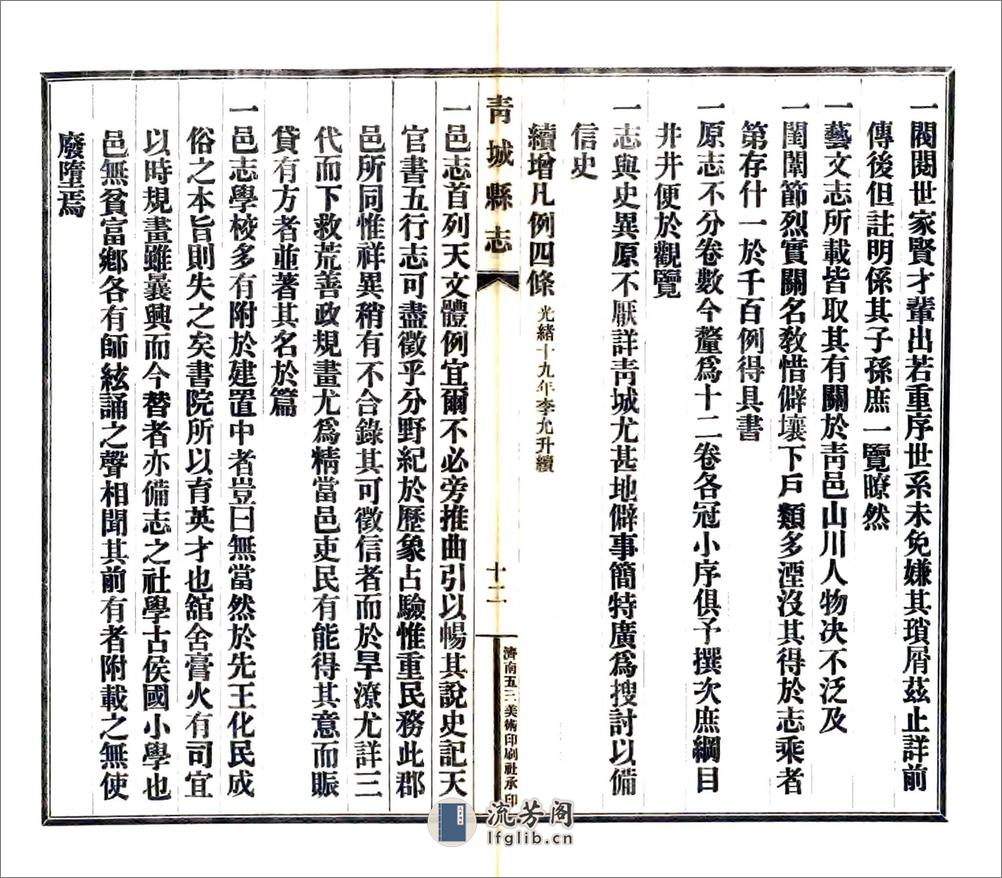 一閥閱世家賢才輩出若重序世系未免嫌其瑣屑茲止詳前
傳後但註明係其子孫庶一覽暸然
一藝文志所載皆取其有關於靑邑山川人物決不泛及
一閨闈節烈實關名敎惜僻壤下戶類多湮沒其得於志乘者
第存什一於千百例得具書
一原志不分卷數今釐爲十二卷各冠小序俱予撰次庶綱目
井井便於觀覽
一志與史異原不厭詳靑城尤甚地僻事簡特廣爲搜討以備
信史
續增凡例四條 光緒十九年李允升續
靑城縣志
十二
濟南五三美術印刷社承印
一邑志首列天文體例宜爾不必旁推曲引以暢其說史記天
官書五行志可盡徵乎分野紀於歷象占驗惟重民務此郡
邑所同惟祥異稍有不合錄其可徵信者而於旱潦尤詳三
代而下救荒善政規畫尤爲精當邑吏民有能得其意而賑
貸有方者並著其名於篇
一邑志學校多有附於建置中者豈曰無當然於先王化民成
俗之本旨則失之矣書院所以育英才也舘舍膏火有司宜
以時規畫雖曩興而今替者亦備志之社學古侯國小學也
邑無貧富鄕各有師絃誦之聲相聞其前有者附載之無使
廢墮焉
流芳阁
lfglib.cn